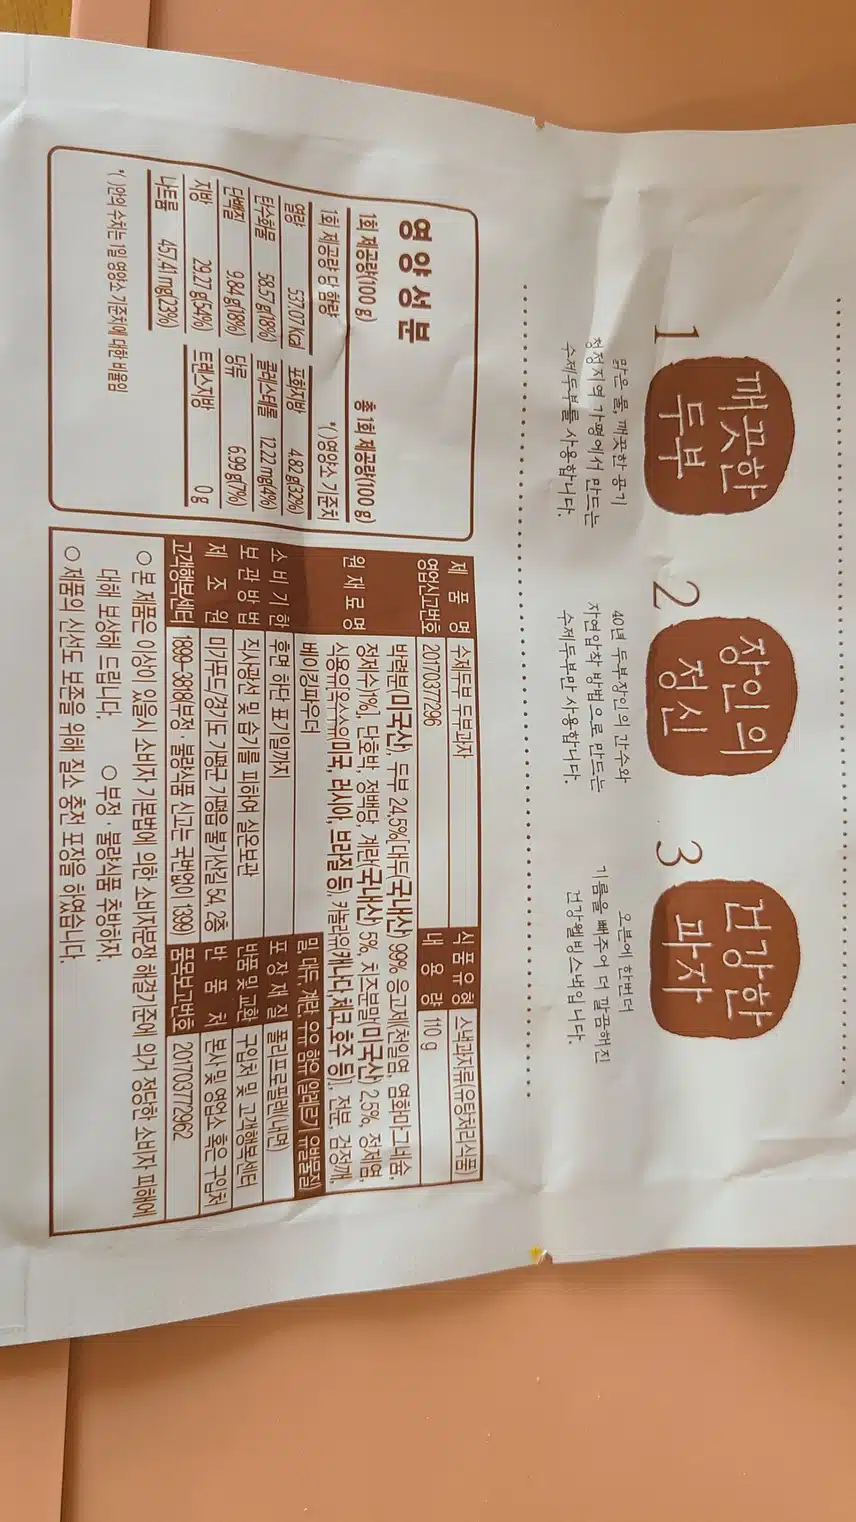 1
깨끗한
두부
맑은 물, 깨끗한 공기
청정지역 가평에서 만드는
수제두부를 사용합니다.
2
장인의
정신
40년 두부장인의 간수와
자연압착 방법으로 만드는
수제두부만 사용합니다.
3
건강한
과자
오븐에 한번더
기름을 빼주어 더 깔끔해진
건강웰빙스낵입니다.
영양성분
1회 제공량(100 g) 총 1회 제공량(100 g)
1회 제공량 당 함량 *( )영양소 기준치
열량 537.07 Kcal 포화지방 4.82 g(32%)
탄수화물 58.57 g(18%) 콜레스테롤 12.22 mg(4%)
단백질 9.84 g(18%) 당류 6.99 g(7%)
지방 29.27 g(54%) 트랜스지방 0 g
나트륨 457.41 mg(23%)
*( )안의 수치는 1일 영양소 기준치에 대한 비율임
제품명 수제두부 두부과자 식품유형 스낵과자류(유탕처리식품)
영업신고번호 20170377296 내용량 110 g
원재료명 박력분(미국산), 두부 24.5%[대두(국내산) 99% 응고제(천일염, 염화마그네슘,
정제수)1%], 단호박, 정백당, 계란(국내산) 5%, 치즈분말(미국산) 2.5%, 정제염,
식용유[옥수수유(미국, 러시아, 브라질 등), 카놀라유(캐나다,체코,호주 등)], 전분, 검정깨,
베이킹파우더 밀, 대두, 계란, 우유 함유 (알레르기 유발물질)
소비기한 후면 하단 표기일까지 포장재질 폴리프로필렌(내면)
보관방법 직사광선 및 습기를 피하여 실온보관 반품 및 교환 구입처 및 고객행복센터
제조원 미가푸드/경기도 가평군 가평읍 불기산길 54, 2층 반품처 본사 및 영업소 혹은 구입처
고객행복센터 1899-3898/부정·불량식품 신고는 국번없이 1399 품목보고번호 201703772962
○ 본 제품은 이상이 있을시 소비자 기본법에 의한 소비자분쟁 해결기준에 의거 정당한 소비자 피해에
대해 보상해 드립니다. ○ 부정·불량식품 추방하자.
○ 제품의 신선도 보존을 위해 질소 충전 포장을 하였습니다.